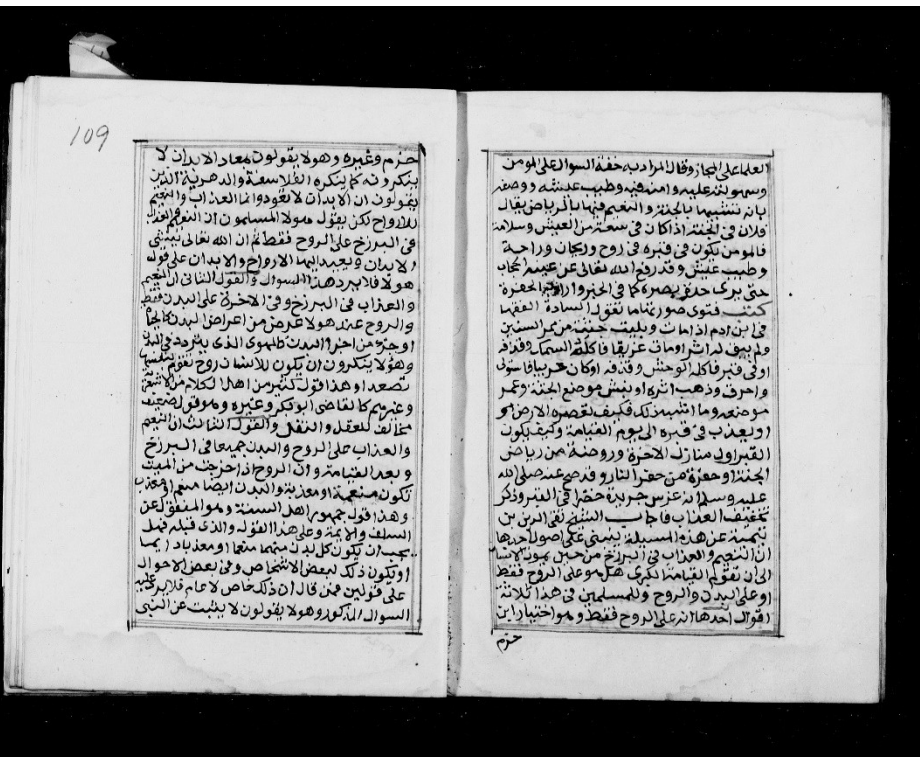 العلما على المجاز وقال المراد به خفة السوال على المومن
وسهولته عليه وامنه فيه وطيب عيشه ووصفه
بانه تشبيها بالجنة والنعيم فيها بالرياض يقال
فلان في الجنة اذا كان في سعة من العيش وسلامة
فالمومن يكون في قبره في روح وريحان وراحة
وطيب عيش وقد رفع الله تعالى عن عينيه الحجاب
حتى يرى حده بصره كما في الخبر واراد الحفرة
كتب فتوى صورتها ما تقول السادة الفقها
في ابن ادم اذا مات وبليت جثته من ممر السنين
ولم يبق له اثر او مات غريقا فاكله السمك وقذفه
او في قبر فاكله الوحش وقذفه او كان حريبا
واحرق وذهب اثره او نبش موضع الجثة وعمر
موضعه وما اشبه ذلك فكيف تعصره الارض
او يعذب في قبره الى يوم القيامة وكيف يكون
القبر اول منازل الاخرة وروضة من رياض
الجنة او حفرة من حفر النار وقد صح عنه صلى الله
عليه وسلم انه غرس جريدة خضرا في القبر وذكر
تخفيف العذاب فاجاب الشيخ تقي الدين بن
تيمية عن هذه المسيلة يبتنى على اصول احدها
ان النعيم والعذاب في البرزخ من حين يموت الانسان
الى ان تقوم القيامة الكبرى هل هو على الروح فقط
او على البدن والروح وللمسلمين في هذا ثلاثة
اقوال احدها انه على الروح فقط وهو اختيار ابن
حزم
109
حزم وغيره وهولا يقولون بمعاد الابدان لا
ينكرونه كما ينكره الفلاسفة والدهرية الذين
يقولون ان الابدان لا تعود وانما العذاب والنعيم
للارواح لكن يقول هولا المسلمون ان النعيم والعذاب
في البرزخ على الروح فقط ثم ان الله تعالى ينشي
الابدان ويعيد اليها الارواح والابدان على قول
هولا فلا يرد هذا السوال والقول الثاني ان النعيم
والعذاب في البرزخ وفي الاخرة على البدن فقط
والروح عند هولا عرض من اعراض البدن كالحياة
او جزء من اجزا البدن كالهوى الذي يتردد في البدن
وهولا ينكرون ان يكون للانسان روح تقوم بنفسها
تصعد وهذا قول كثير من اهل الكلام من الاشعرية
وغيرهم كالقاضي ابو بكر وغيره وهو قول ضعيف
مخالف للعقل والنقل والقول الثالث ان النعيم
والعذاب على الروح والبدن جميعا في البرزخ
وبعد القيامة وان الروح اذا خرجت من الميت
تكون منعمة او معذبة والبدن ايضا منعم او معذب
وهذا قول جمهور اهل السنة وهو المنقول عن
السلف والايمة وعلى هذا القول والذي قبله فهل
يجب ان يكون كل بدن منهما منعما او معذبا دايما
او يكون ذلك لبعض الاشخاص وفي بعض الاحوال
على قولين فمن قال ان ذلك خاص لا عام فلا يرد عليه
السوال المذكور وهولا يقولون لا يثبت عن النبي